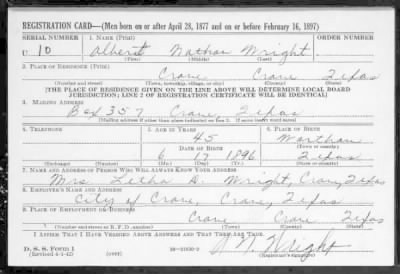 REGISTRATION CARD—(Men born on or after April 28, 1877 and on or before February 16, 1897)
SERIAL NUMBER 1. NAME (Print)
U 10 Albert Nathan Wright
(First) (Middle) (Last)
2. PLACE OF RESIDENCE (Print)
Crane Crane Texas
(Number and street) (Town, township, village, or city) (County) (State)
[THE PLACE OF RESIDENCE GIVEN ON THE LINE ABOVE WILL DETERMINE LOCAL BOARD
JURISDICTION; LINE 2 OF REGISTRATION CERTIFICATE WILL BE IDENTICAL]
3. MAILING ADDRESS
Box 357 Crane, Texas
[Mailing address if other than place indicated on line 2. If same insert word same]
4. TELEPHONE 5. AGE IN YEARS 6. PLACE OF BIRTH
45 Wortham
DATE OF BIRTH (Town or county)
6 17 1896 Texas
(Exchange) (Number) (Mo.) (Day) (Yr.) (State or country)
7. NAME AND ADDRESS OF PERSON WHO WILL ALWAYS KNOW YOUR ADDRESS
Mrs. Letha D. Wright, Crane, Texas
8. EMPLOYER'S NAME AND ADDRESS
City of Crane, Crane, Texas
9. PLACE OF EMPLOYMENT OR BUSINESS
Crane Crane Texas
(Number and street or R. F. D. number) (Town) (County) (State)
I AFFIRM THAT I HAVE VERIFIED ABOVE ANSWERS AND THAT THEY ARE TRUE.
D. S. S. Form 1
(Revised 4-1-42) (over) 16—21630-2
A. N. Wright
(Registrant's signature)